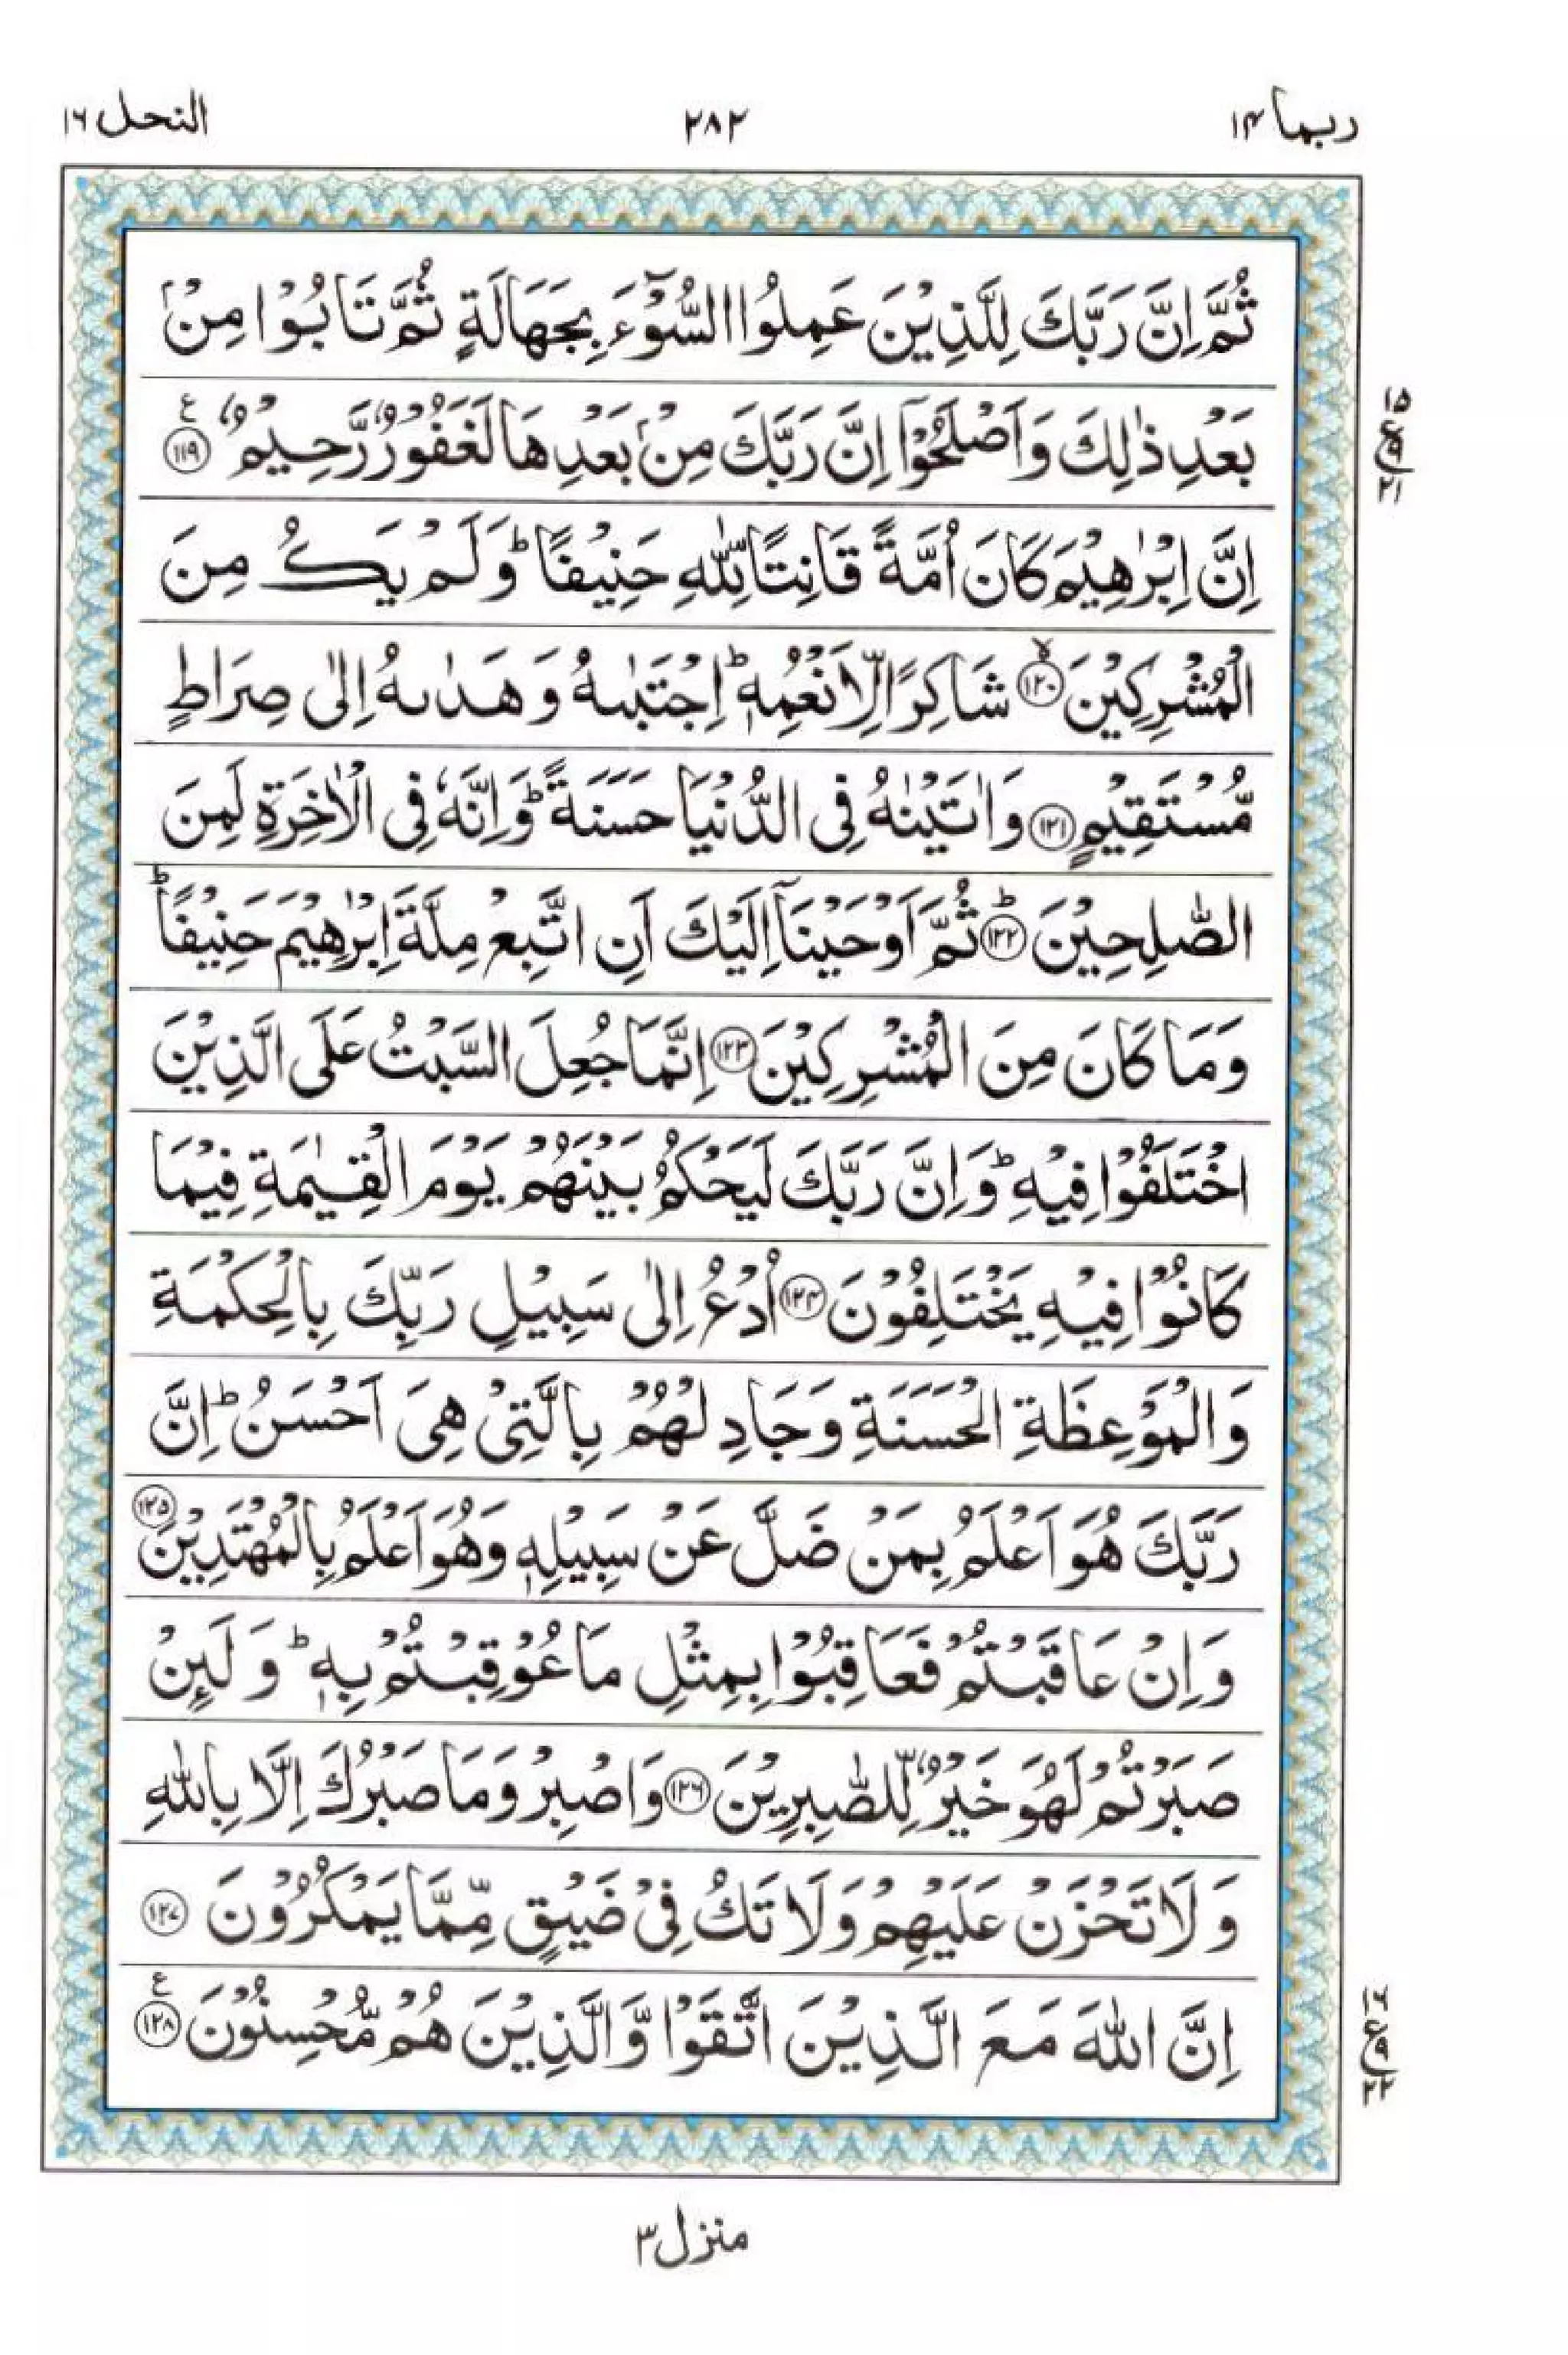 ربما ١٤ ٢٨٢ النحل ١٦
ثُمَّ اِنَّ رَبَّكَ لِلَّذِيْنَ عَمِلُوا السُّوْٓءَ بِجَهَالَةٍ ثُمَّ تَابُوْا مِنْۢ
بَعْدِ ذٰلِكَ وَاَصْلَحُوْٓا اِنَّ رَبَّكَ مِنْۢ بَعْدِهَا لَغَفُوْرٌ رَّحِيْمٌ ۧ‏﴿١١٩﴾
١٥
ع ٩
٢١
اِنَّ اِبْرٰهِيْمَ كَانَ اُمَّةً قَانِتًا لِّلّٰهِ حَنِيْفًا ؕ وَلَمْ يَكُ مِنَ
الْمُشْرِكِيْنَ ۙ‏﴿١٢٠﴾ شَاكِرًا لِّاَنْعُمِهٖ ؕ اِجْتَبٰىهُ وَهَدٰىهُ اِلٰى صِرَاطٍ
مُّسْتَقِيْمٍ ‏﴿١٢١﴾ وَاٰتَيْنٰهُ فِى الدُّنْيَا حَسَنَةً ؕ وَاِنَّهٗ فِى الْاٰخِرَةِ لَمِنَ
الصّٰلِحِيْنَ ؕ‏﴿١٢٢﴾ ثُمَّ اَوْحَيْنَاۤ اِلَيْكَ اَنِ اتَّبِعْ مِلَّةَ اِبْرٰهِيْمَ حَنِيْفًا ؕ
وَمَا كَانَ مِنَ الْمُشْرِكِيْنَ ‏﴿١٢٣﴾ اِنَّمَا جُعِلَ السَّبْتُ عَلَى الَّذِيْنَ
اخْتَلَفُوْا فِيْهِ ؕ وَاِنَّ رَبَّكَ لَيَحْكُمُ بَيْنَهُمْ يَوْمَ الْقِيٰمَةِ فِيْمَا
كَانُوْا فِيْهِ يَخْتَلِفُوْنَ ‏﴿١٢٤﴾ اُدْعُ اِلٰى سَبِيْلِ رَبِّكَ بِالْحِكْمَةِ
وَالْمَوْعِظَةِ الْحَسَنَةِ وَجَادِلْهُمْ بِالَّتِىْ هِىَ اَحْسَنُ ؕ اِنَّ
رَبَّكَ هُوَ اَعْلَمُ بِمَنْ ضَلَّ عَنْ سَبِيْلِهٖ وَهُوَ اَعْلَمُ بِالْمُهْتَدِيْنَ ‏﴿١٢٥﴾
وَاِنْ عَاقَبْتُمْ فَعَاقِبُوْا بِمِثْلِ مَا عُوْقِبْتُمْ بِهٖ ؕ وَلَئِنْ
صَبَرْتُمْ لَهُوَ خَيْرٌ لِّلصّٰبِرِيْنَ ‏﴿١٢٦﴾ وَاصْبِرْ وَمَا صَبْرُكَ اِلَّا بِاللّٰهِ
وَلَا تَحْزَنْ عَلَيْهِمْ وَلَا تَكُ فِىْ ضَيْقٍ مِّمَّا يَمْكُرُوْنَ ‏﴿١٢٧﴾
اِنَّ اللّٰهَ مَعَ الَّذِيْنَ اتَّقَوْا وَّالَّذِيْنَ هُمْ مُّحْسِنُوْنَ ۧ‏﴿١٢٨﴾
١٦
ع ٩
٢٢
منزل ٣